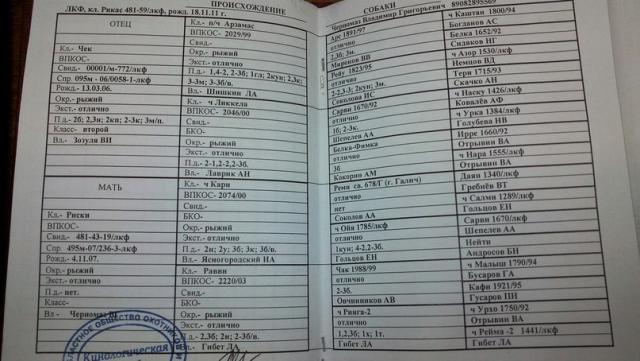 ПРОИСХОЖДЕНИЕ
ЛКФ, кл. Рикас 481-59/лкф, рожд. 18.11.11 г.
ОТЕЦ
Кл.- Чек
ВПКОС-
Свид.- 00001/м-772/лкф
Спр. 095м - 06/0058-1-лкф
Рожд.- 13.03.06.
Окр.- рыжий
Экст.- отлично
П.д.- 2б; 2,3н; 2кп; 2-3к; 3м/п.
Класс- второй
Вл.- Зозуля ВИ
МАТЬ
Кл.- Риски
ВПКОС-
Свид.- 481-43-19/лкф
Спр. 495м-07/236-3-лкф
Рожд.- 4.11.07.
Окр.- рыжий
Экст.- отлично
П.д.- нет.
Класс-
Вл - Черномаз ВГ
Кл.- п/ч Арзамас
ВПКОС- 2029/99
Свид.-
Окр.- рыжий
Экст.- отлично
П.д.- 1,4-2, 2-3б; 1гл; 2кун; 2,3к;
3-3м; 3-3б/в.
Вл.- Шишкин ЛА
Кл.- ч Ликкела
ВПКОС- 2046/00
Свид.-
БКО-
Окр.- рыжий
Экст.- отлично
П.д- 2-1,2-2,2-3б.
Вл.- Лаврик АН
Кл.- ч Кари
ВПКОС- 2074/00
Свид.-
БКО-
Окр.- рыжий
Экст.- отлично
П.д.- 2н; 2у; 3б; 3к; 3б/в.
Вл.- Ясногородский ИА
Кл.- Равви
ВПКОС- 2220/03
Свид.-
БКО-
Окр.- рыжий
Экст.- отлично
П.д.- 2,3б; 2н; 2-3б/в.
Вл.- Гибет ЛА
СОБАКИ
Черномаз Владимир Григорьевич 89082895569
Арс 1891/97
отлично
2-3б; 3н.
Миронов ВВ
Рейу 1823/95
отлично
2-2,2-3; 2кун; 3н.
Соколова ИС
Сарви 1670/92
отлично
1б; 2-3к.
Шепелев АА
Белка-Фимка
отлично
3б
Кокорин АМ
Рема св. 678/Г (г. Галич)
отлично
нет
Соколов АА
ч Ойя 1785/лкф
отлично
1кун; 4-2,2-3б.
Гольцов ЕН
Чак 1988/99
отлично
2-3б.
Овчинников АВ
ч Ринга-2
отлично
1,2,3б; 1х; 1т.
Гибет ЛА
ч Каштан 1800/94
Богданов АС
Белка 1652/92
Сидяков НГ
ч Азор 1530/лкф
Немцов ВД
Тери 1715/93
Скачко АН
ч Наску 1426/лкф
Ковалёв АФ
ч Урка 1384/лкф
Голубева НВ
Ирре 1660/92
Отрывин ВА
ч Нара 1555/лкф
Отрывин ВА
Даян 1340/лкф
Гребнёв ВТ
ч Салми 1289/лкф
Гольцов ЕН
Сарви 1670/92
Шепелев АА
Нейти
Андросов БН
ч Малыш 1790/94
Бусаров ГА
Кафи 1921/95
Гусаров ПН
ч Урхо 1750/92
Отрывин ВА
ч Рейма -2 1441/лкф
Гибет ЛА
ОБЩЕСТВО ОХОТНИКОВ И
Кинологическая